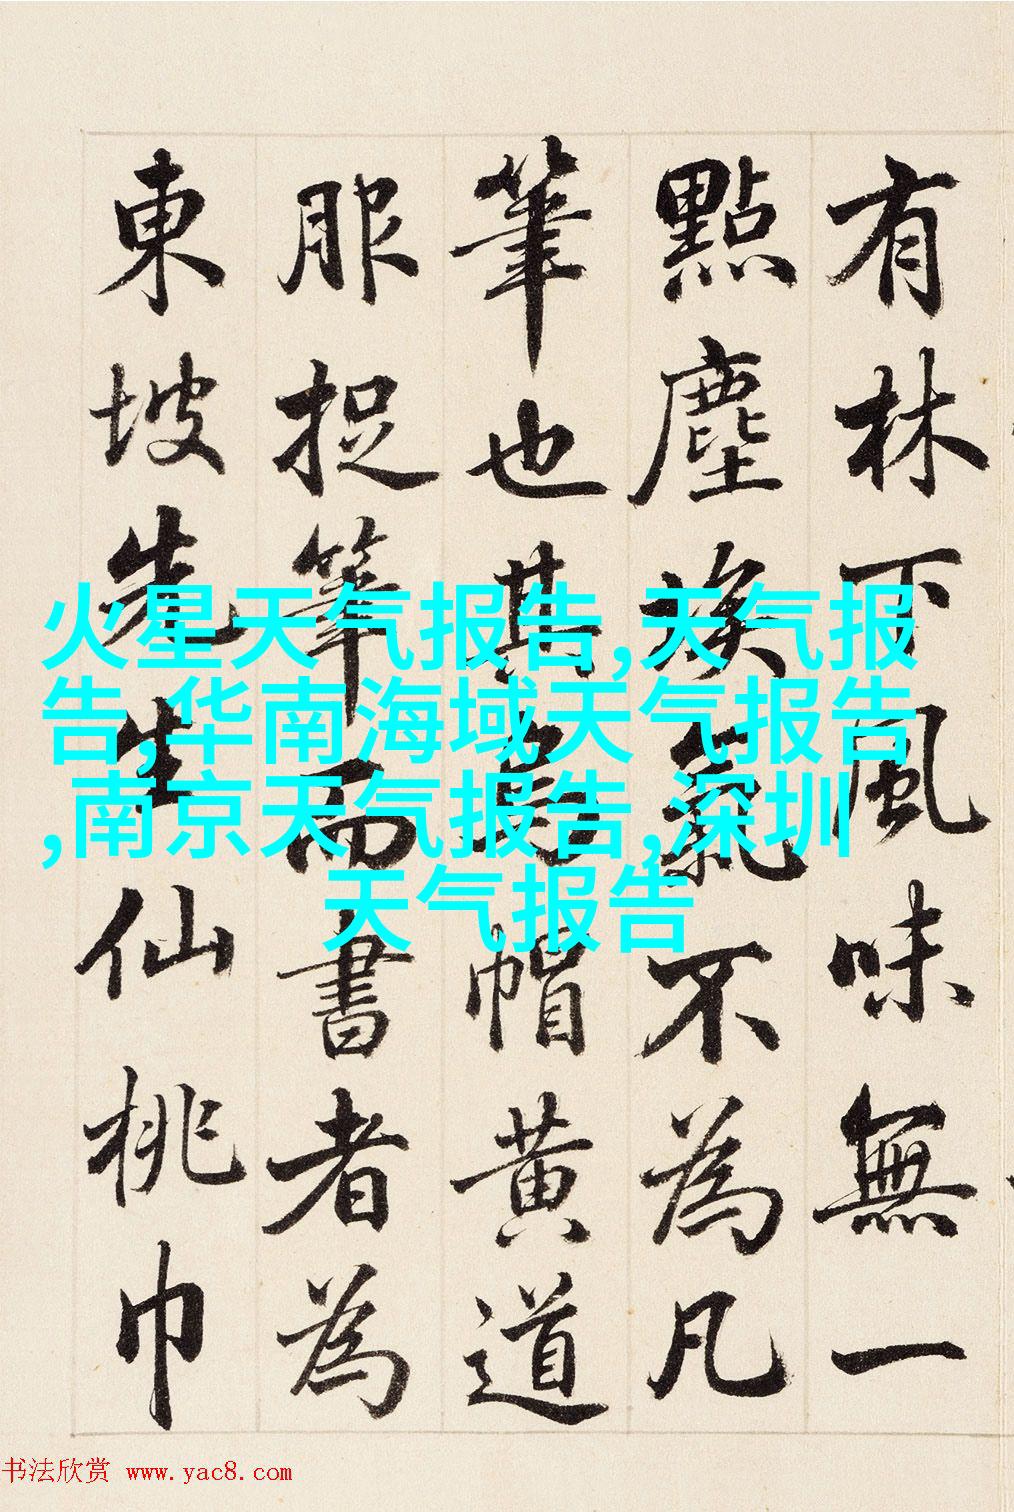 有林下風味無一
點塵埃氣不為凡
筆也其烏帽黃道
服捉筆而書者為
東坡先生仙桃巾
火星天气报告,天气报
告,华南海域天气报告
,南京天气报告,深圳
天气报告
书法欣赏 www.yac8.com